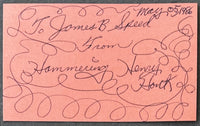 May 5, 1986
To James B. Skeed
From
Hammering Henry